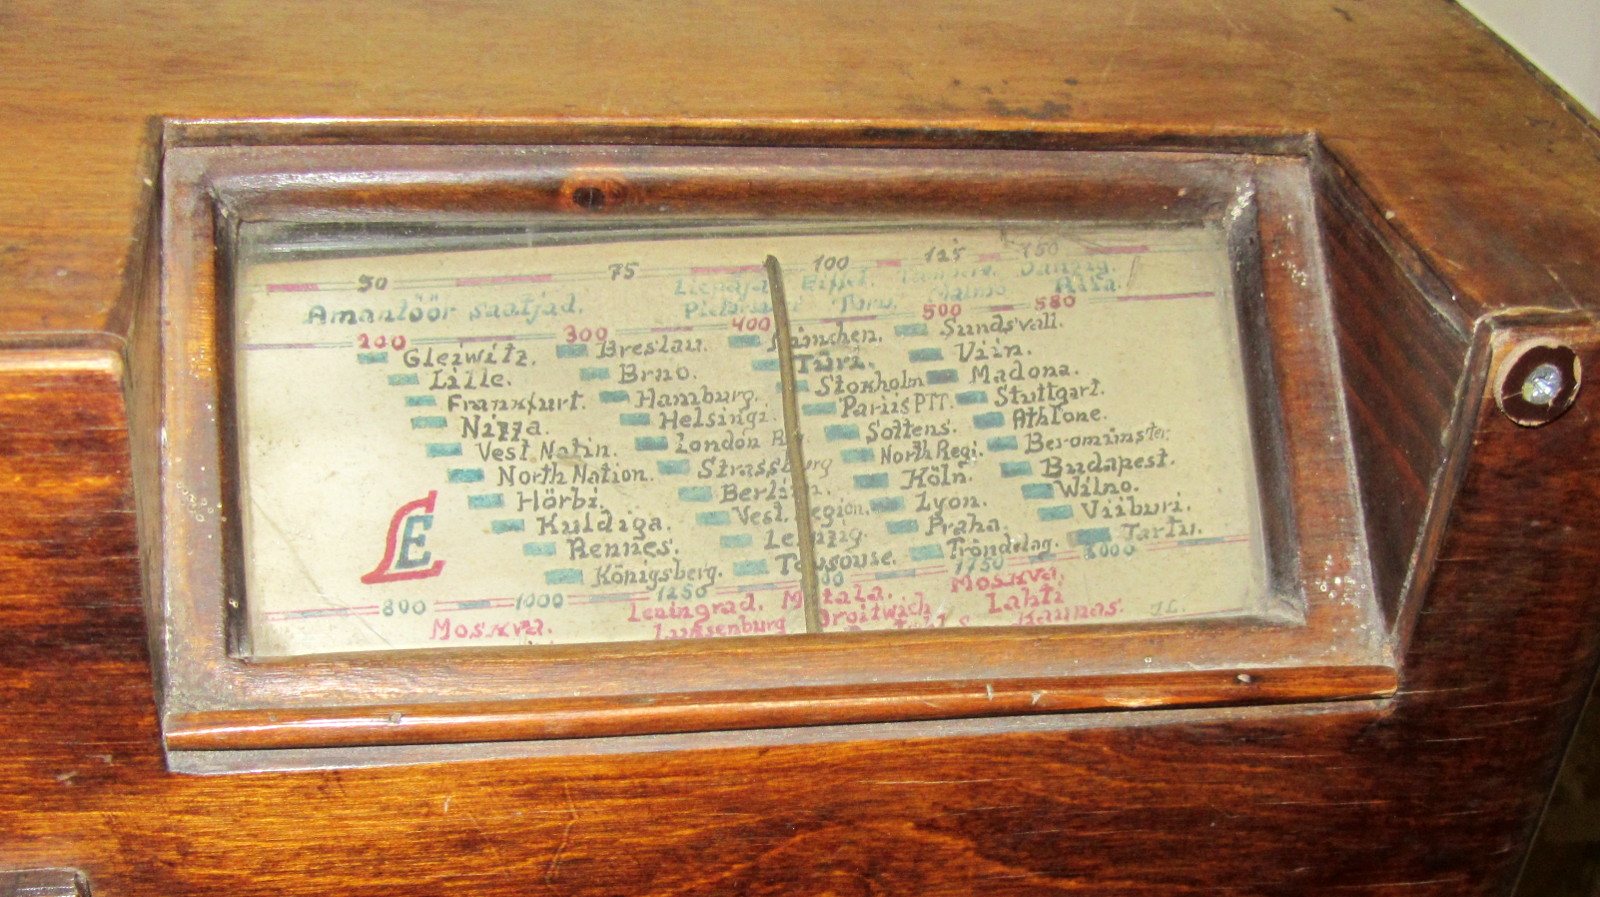 50 75 100 125 150
Liepāja. Eiffel. Danzig.
Amaatöör saatjad. Malmö Riia.
200 300 400 500 580
Gleiwitz. Breslau. München. Sundsvall.
Lille. Brno. Türi. Viin.
Frankfurt. Hamburg. Stokholm Madona.
Nizza. Helsingi. Pariis PTT. Stuttgart.
Vest Natin. London Sottens. Athlone.
North Nation. Strassburg North Regi. Beromünster.
Hörbi. Berliin. Köln. Budapest.
Kuldiga. Vest. Region. Lyon. Wilno.
Rennes. Leipzig. Praha. Viiburi.
Königsberg. Tousouse. Tröndelag. Tartu.
LE
800 1000 1250 1750 2000
Moskva. Leningrad. Motala. Moskva.
Luksenburg Droitwich Lahti
Kaunas. J.L.